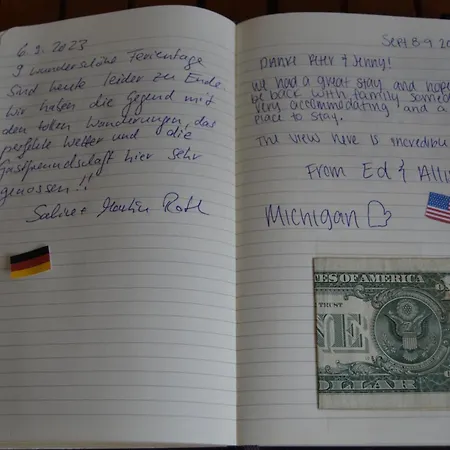 6.9.2023
9 wunderschöne Ferientage
sind heute leider zu Ende.
Wir haben die Gegend mit
den tollen Wanderungen, das
perfekte Wetter und die
Gastfreundschaft hier sehr
genossen!!
Sabine + Martin Roth
Sept 8-9 20
Danke Peter & Jenny!
We had a great stay and hope
be back with family someda
very accommodating and a
place to stay.
The view here is incredible
From Ed & Alli
Michigan
TES OF AMERICA
TRUST
NE
DOLLAR